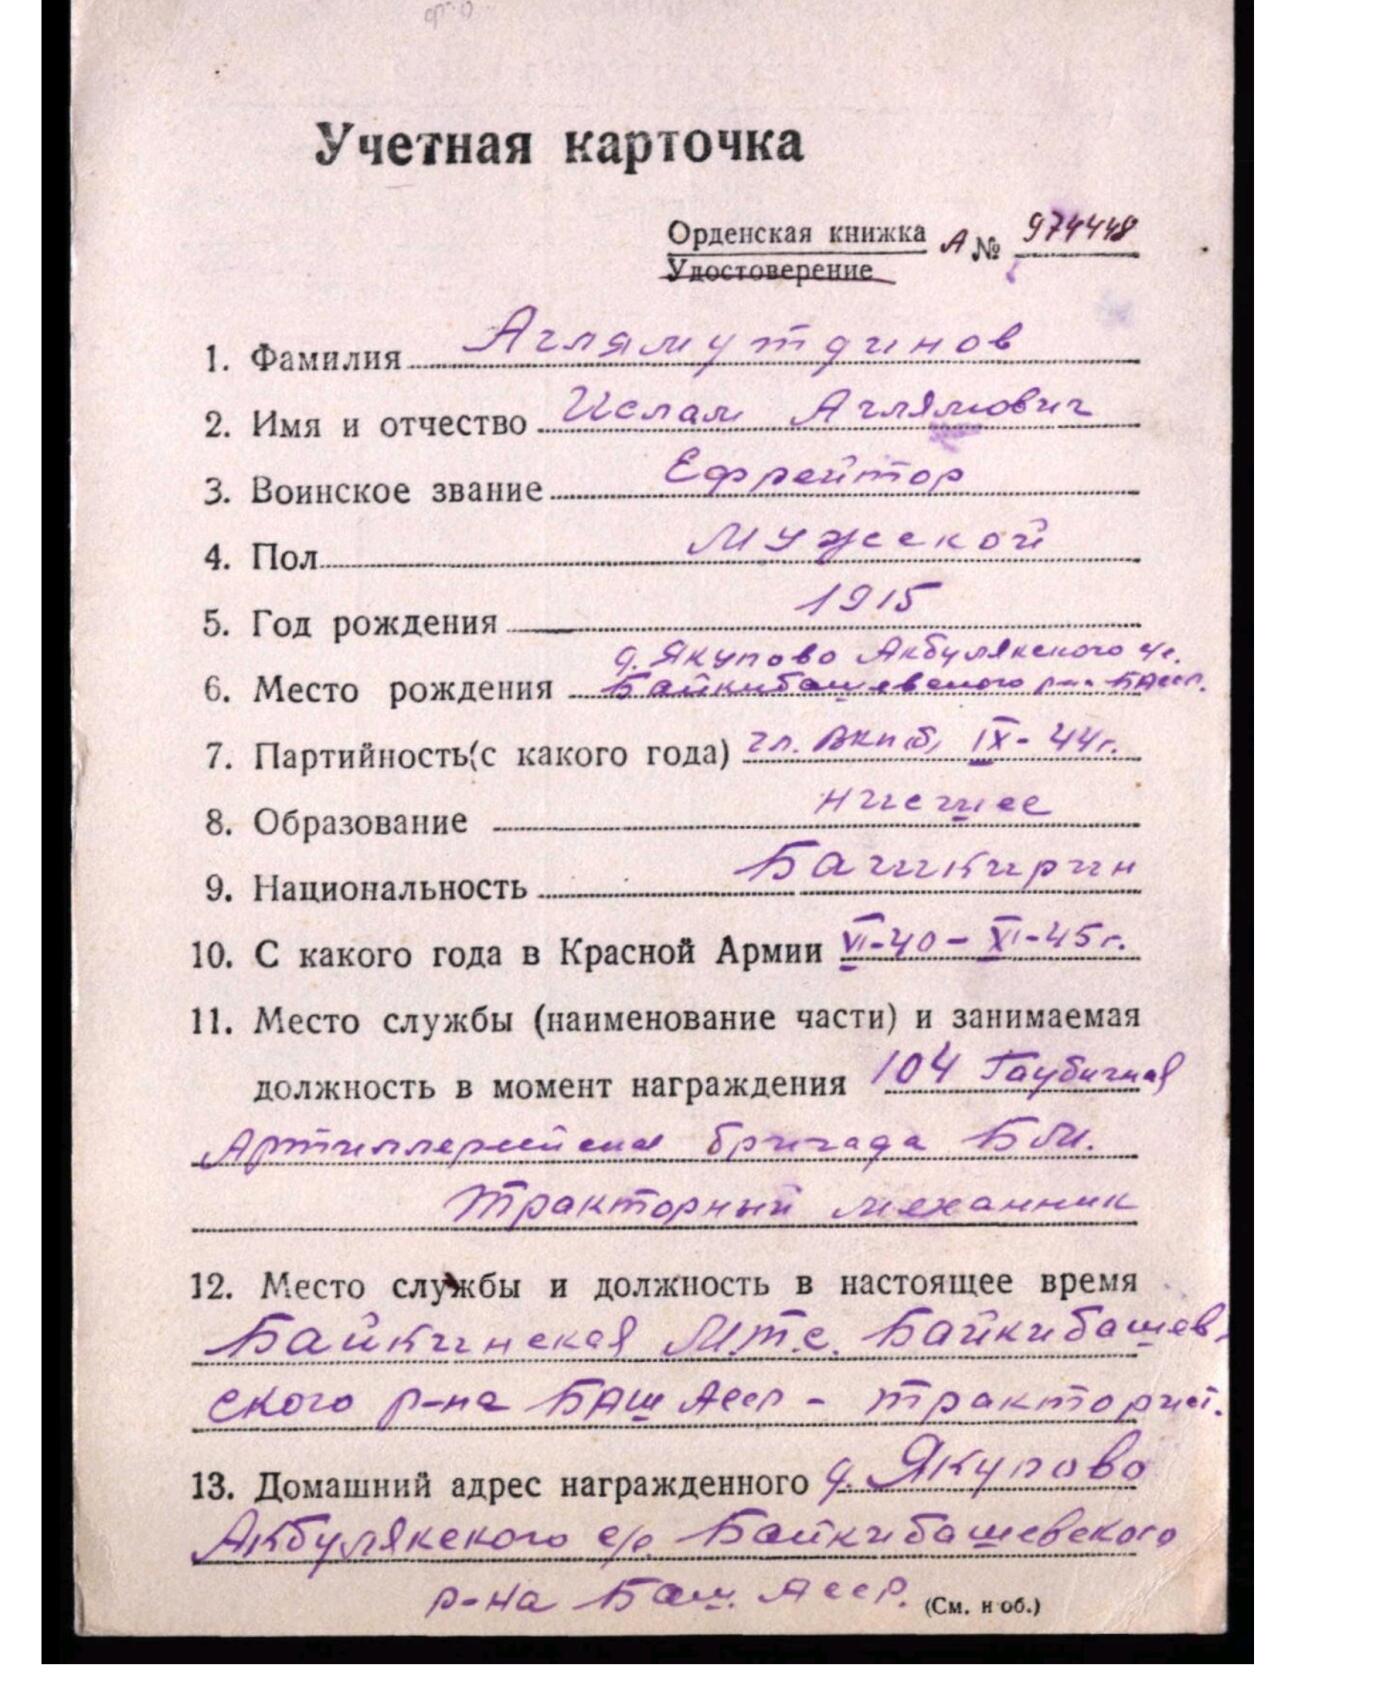 Учетная карточка
Орденская книжка А № 974448
Удостоверение
1. Фамилия Аглямутдинов
2. Имя и отчество Ислам Аглямович
3. Воинское звание Ефрейтор
4. Пол Мужской
5. Год рождения 1915
д. Якупово Акбулякского с/с.
6. Место рождения Байкибашевского р-на БАССР.
7. Партийность (с какого года) чл. ВКП(б) IX-44г.
8. Образование низшее
9. Национальность Башкирин
10. С какого года в Красной Армии VI-40 - XI-45г.
11. Место службы (наименование части) и занимаемая
должность в момент награждения 104 Гаубичная
Артиллерийская бригада Б.М.
Тракторный механник
12. Место службы и должность в настоящее время
Байкинская М.Т.С. Байкибашев-
ского р-на БАШ АССР - тракторист.
13. Домашний адрес награжденного д. Якупово
Акбулякского с/с. Байкибашевского
р-на Баш. АССР. (См. н об.)